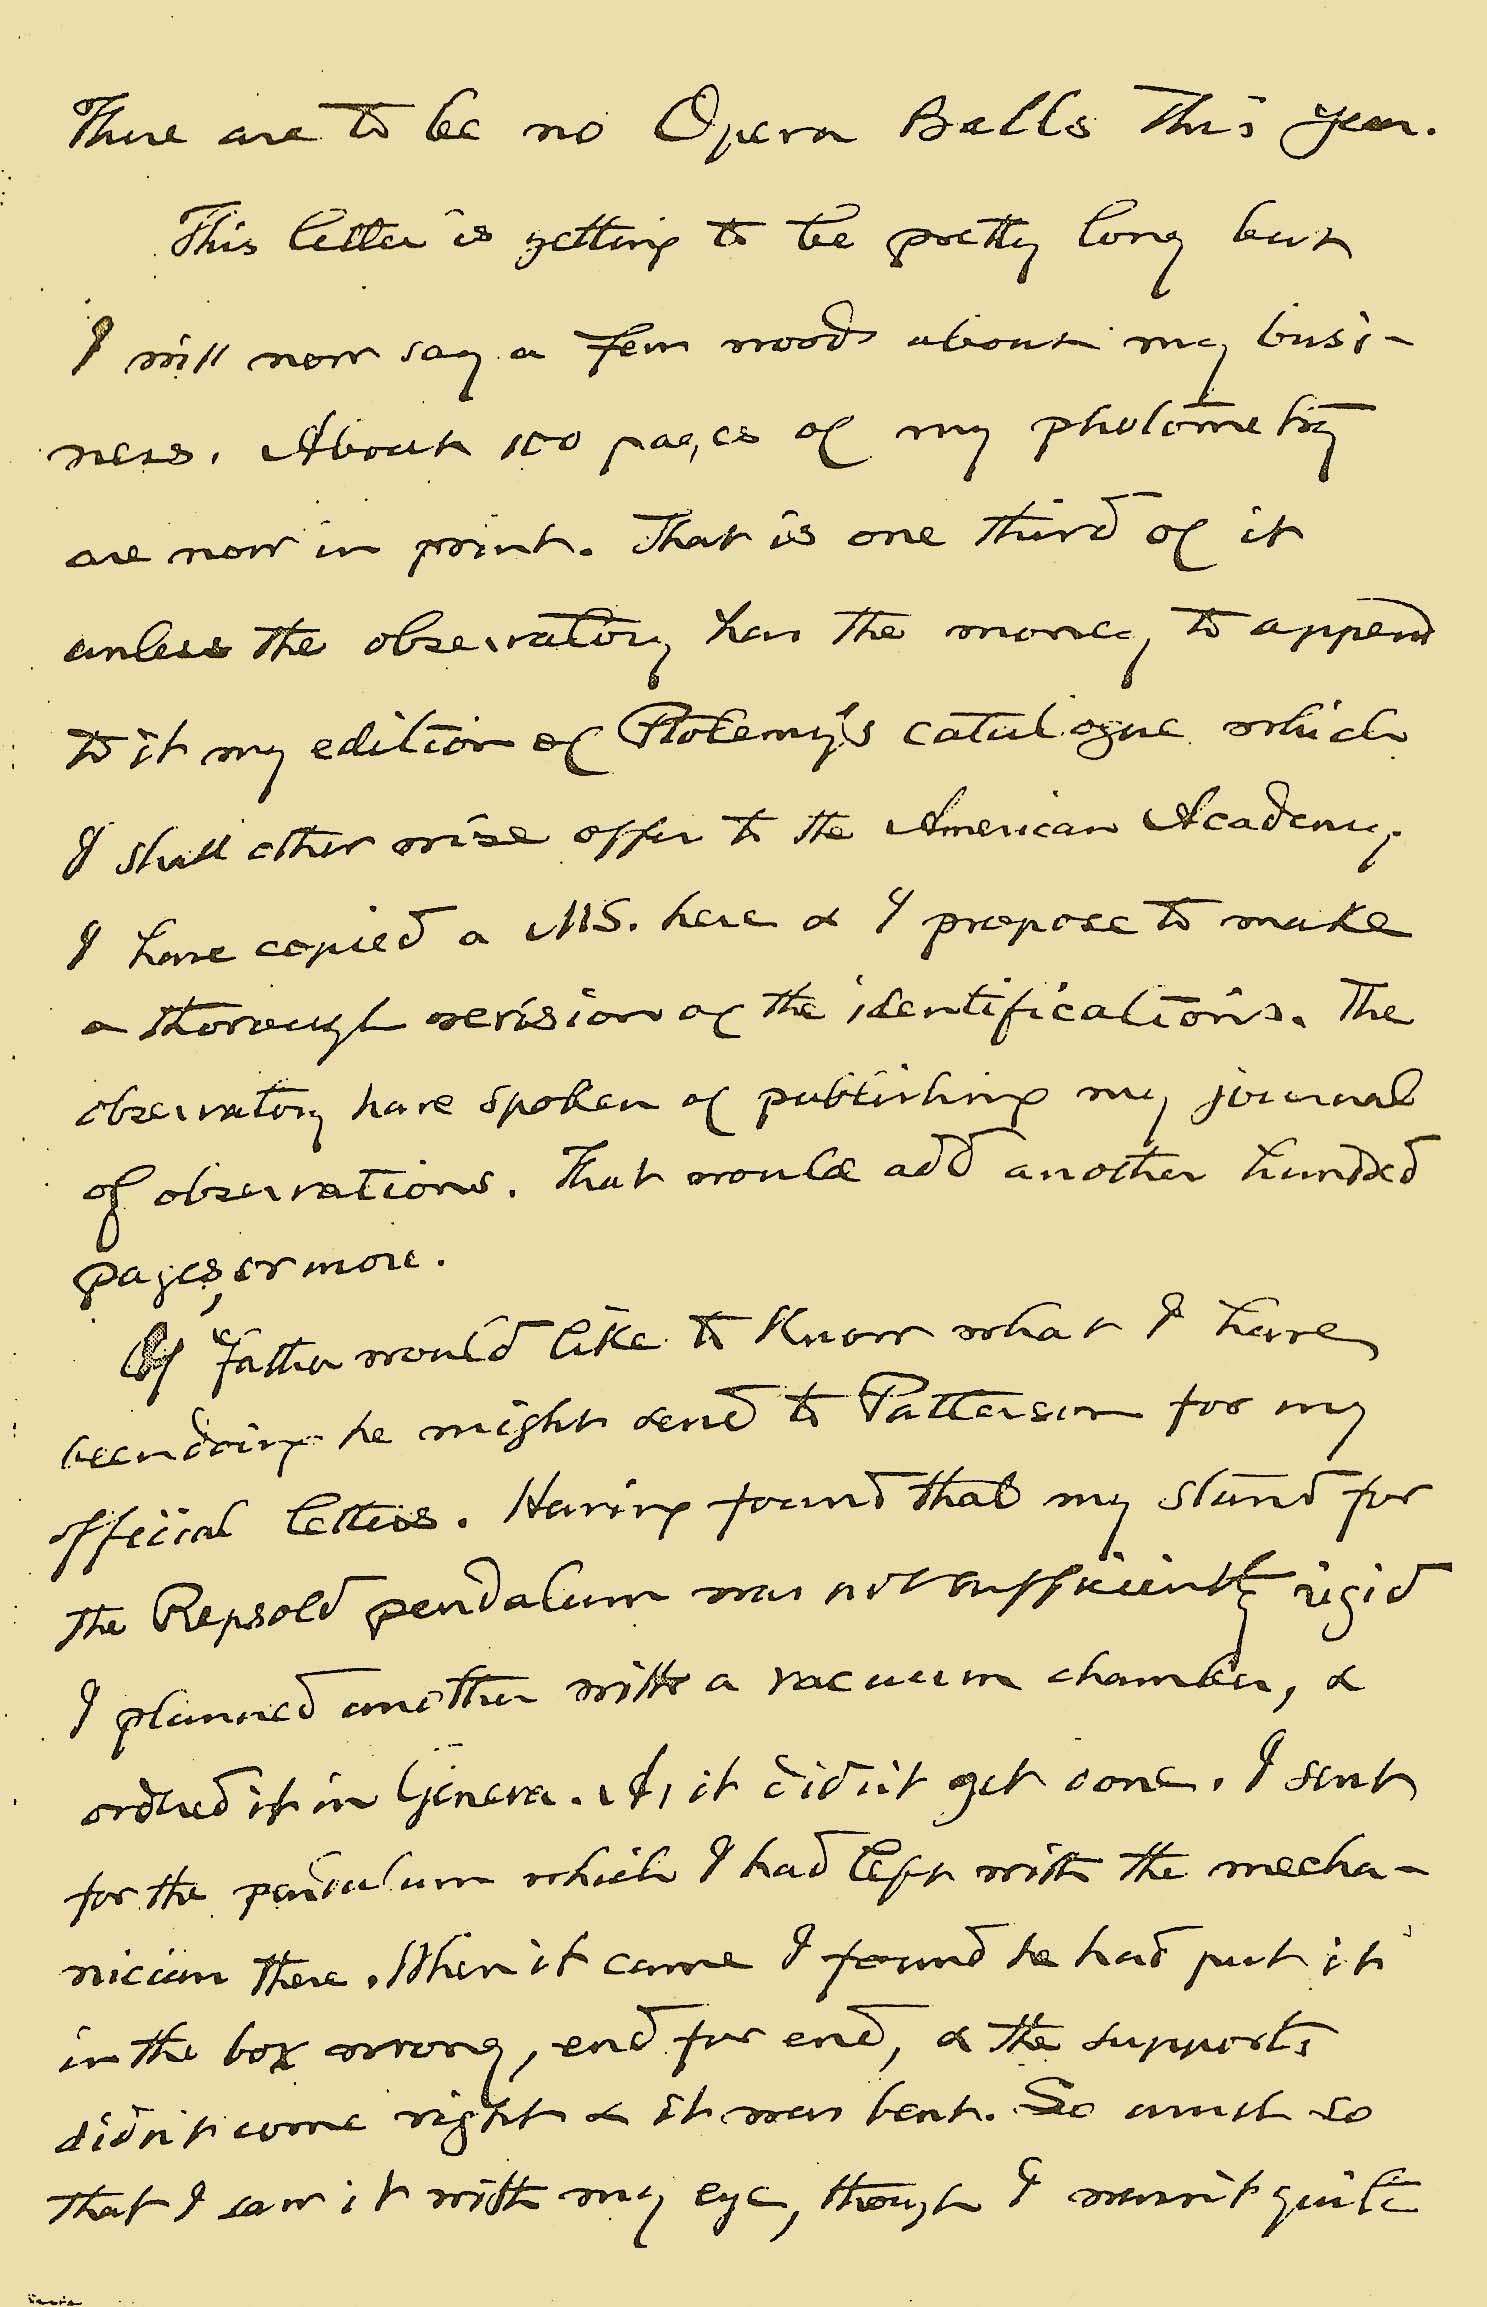 There are to be no Opera Balls this year.
This letter is getting to be pretty long but
I will now say a few words about my busi-
ness. About 100 pages of my photometry
are now in print. That is one third of it
unless the observatory has the money to append
to it my edition of Ptolemy's catalogue which
I shall otherwise offer to the American Academy.
I have copied a MS. here & I propose to make
a thorough revision of the identifications. The
observatory have spoken of publishing my journal
of observations. That would add another hundred
pages, or more.
If father would like to know what I have
been doing he might send to Patterson for my
official letters. Having found that my stand for
the Repsold pendulum was not sufficiently rigid
I planned another with a vacuum chamber, &
ordered it in Geneva. As it didn't get done. I sent
for the pendulum which I had left with the mecha-
nician there. When it came I found he had put it
in the box wrong, end for end, & the supports
didn't come right & it was bent. So much so
that I saw it with my eye, though I wasn't quite